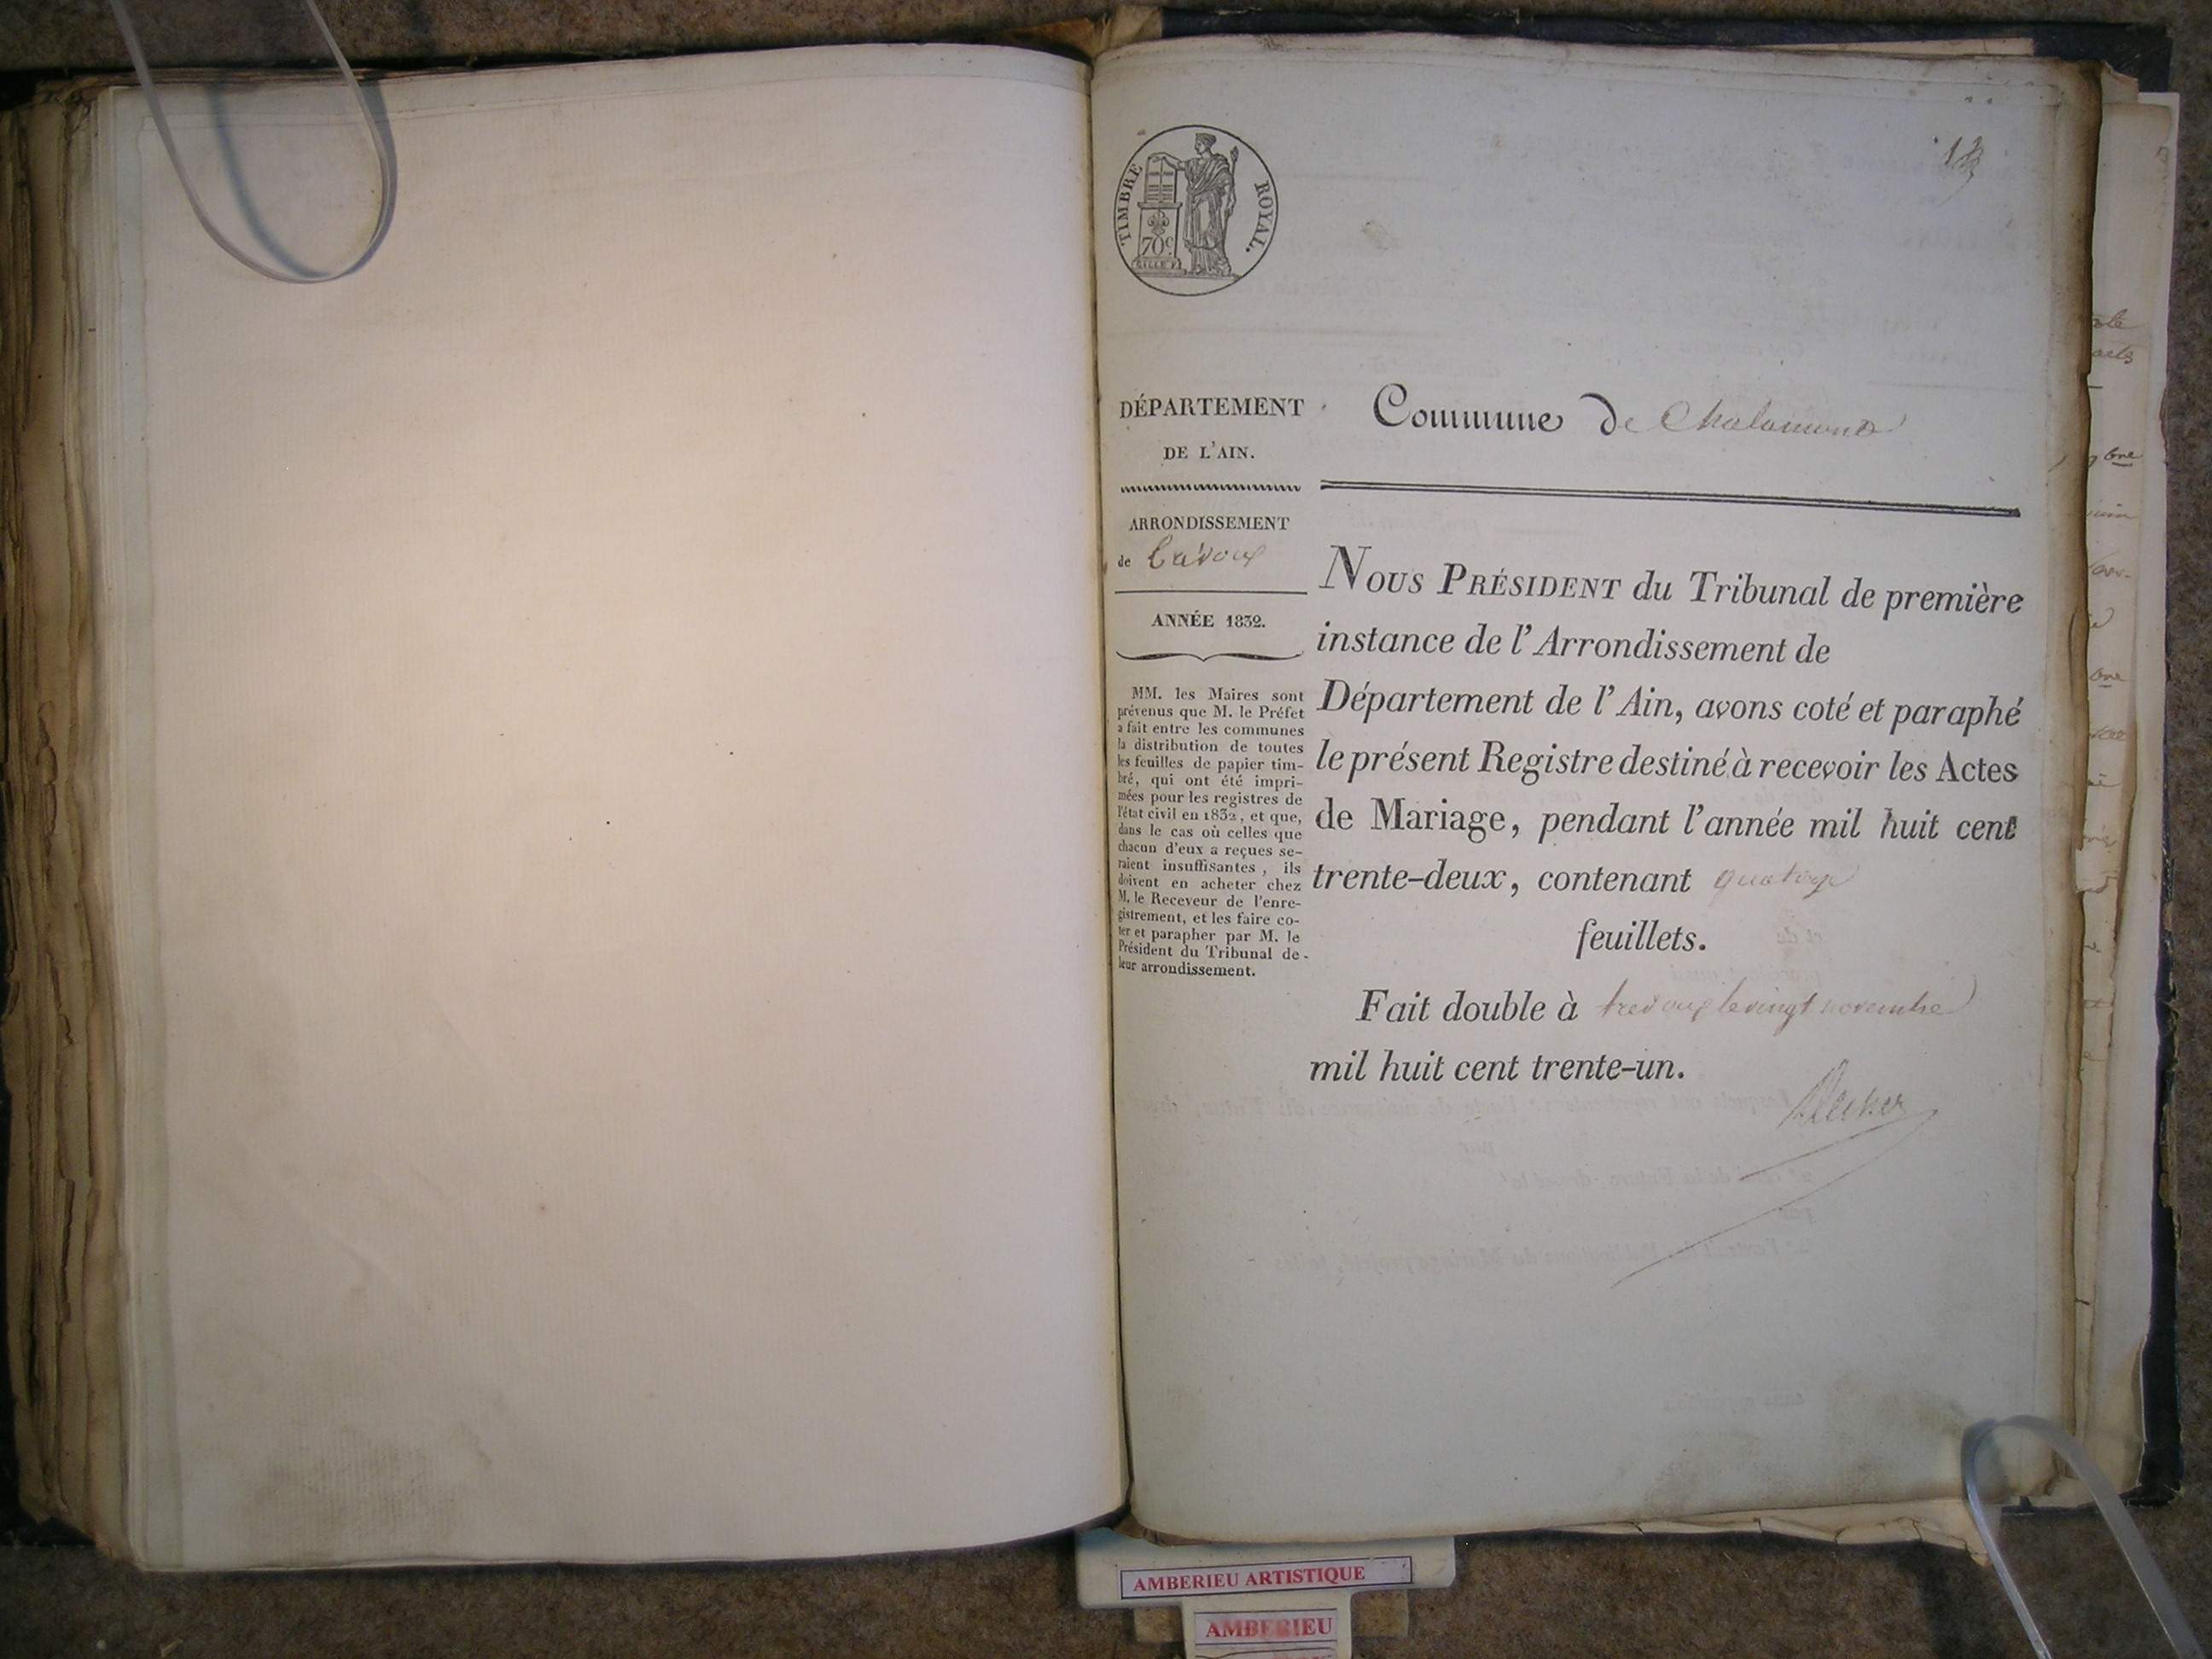 TIMBRE ROYAL.
70c
DÉPARTEMENT
DE L'AIN.
ARRONDISSEMENT
de Trévoux
ANNÉE 1832.
MM. les Maires sont
prévenus que M. le Préfet
a fait entre les communes
la distribution de toutes
les feuilles de papier tim-
bré, qui ont été impri-
mées pour les registres de
l'état civil en 1832, et que,
dans le cas où celles que
chacun d'eux a reçues se-
raient insuffisantes, ils
doivent en acheter chez
M. le Receveur de l'enre-
gistrement, et les faire co-
ter et parapher par M. le
Président du Tribunal de
leur arrondissement.
Commune de Chalamont
Nous Président du Tribunal de première
instance de l'Arrondissement de
Département de l'Ain, avons coté et paraphé
le présent Registre destiné à recevoir les Actes
de Mariage, pendant l'année mil huit cent
trente-deux, contenant quatorze
feuillets.
Fait double à trevoux le vingt novembre
mil huit cent trente-un.
AMBERIEU ARTISTIQUE
AMBERIEU